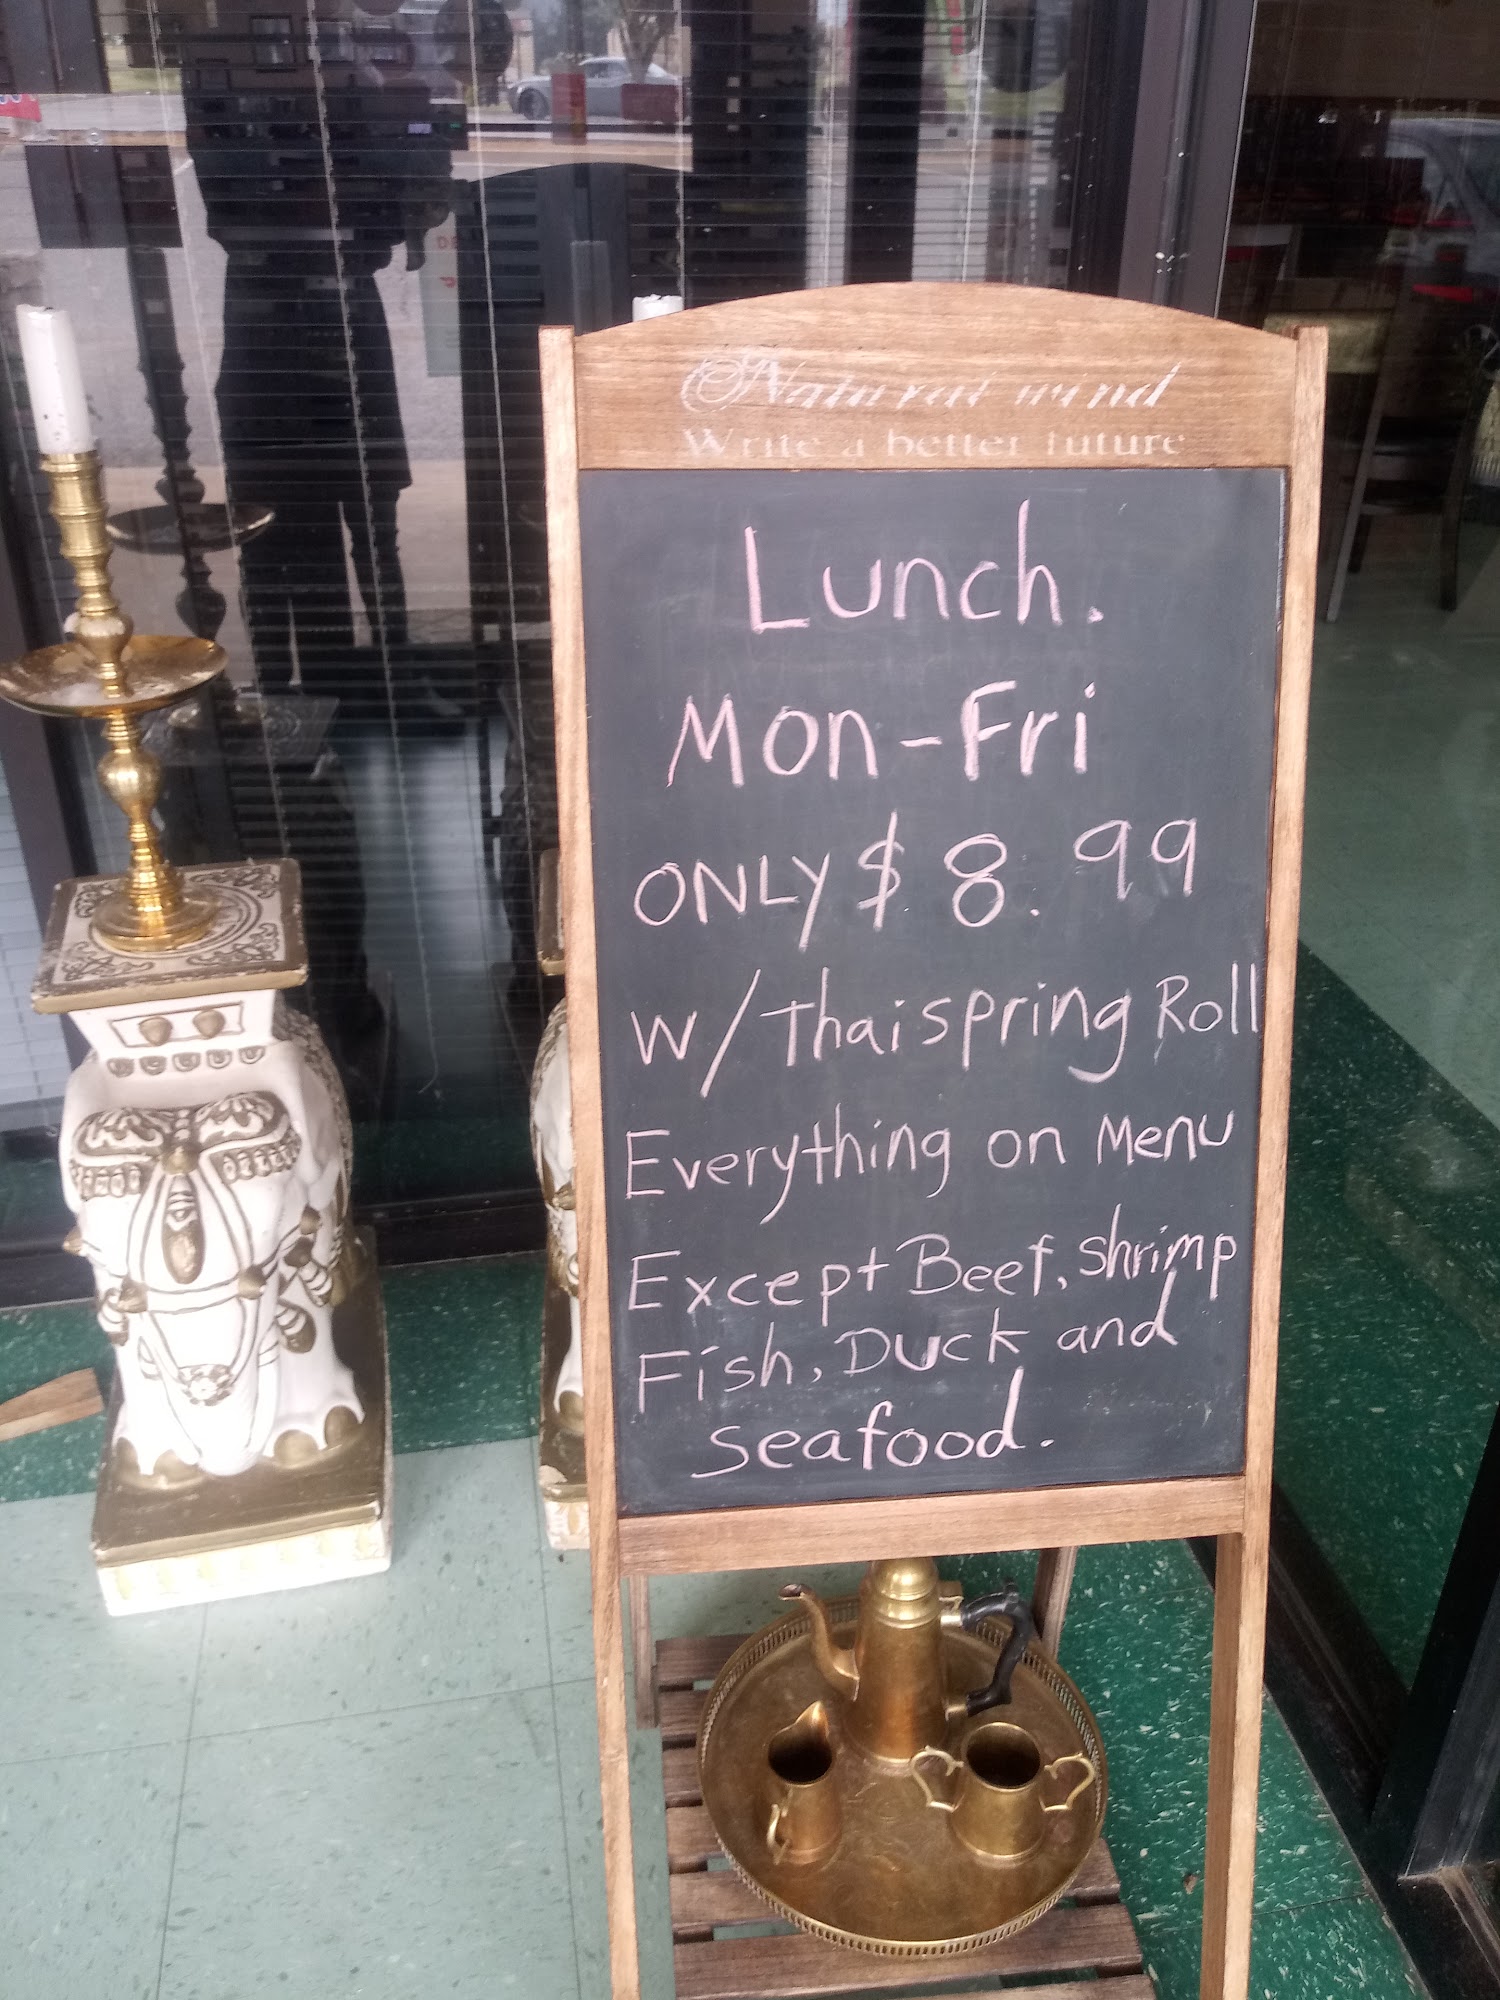 Natural wind
Write a better future
Lunch.
Mon-Fri
ONLY $8.99
W/Thai spring Roll
Everything on Menu
Except Beef, shrimp
Fish, Duck and
seafood.